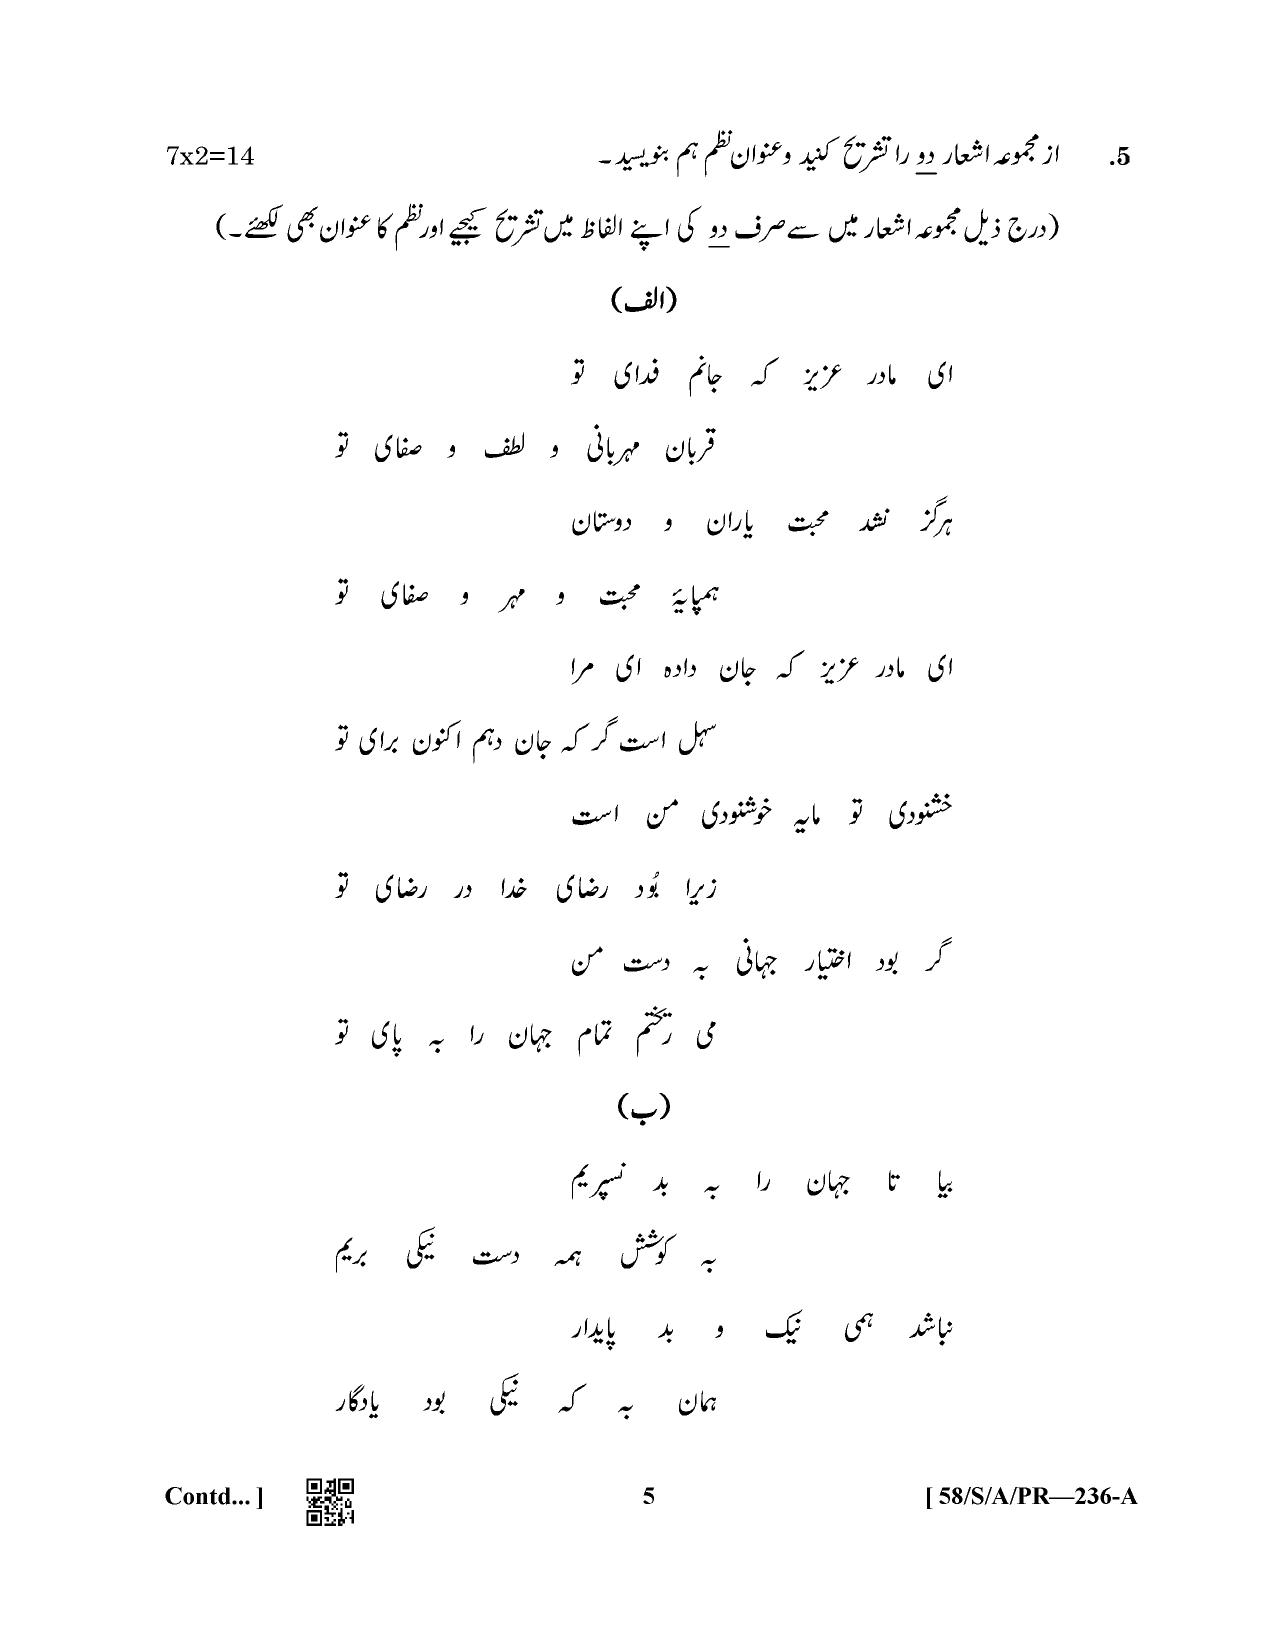 5. از مجموعہ اشعار دو را تشریح کنید وعنوان نظم ہم بنویسید ۔ 7x2=14
(درج ذیل مجموعہ اشعار میں سے صرف دو کی اپنے الفاظ میں تشریح کیجیے اور نظم کا عنوان بھی لکھئے۔)
(الف)
ای مادر عزیز کہ جانم فدای تو
قربان مہربانی و لطف و صفای تو
ہرگز نشد محبت یاران و دوستان
ہمپایۂ محبت و مہر و صفای تو
ای مادر عزیز کہ جان دادہ ای مرا
سہل است گر کہ جان دہم اکنون برای تو
خشنودی تو مایہ خوشنودی من است
زیرا بُود رضای خدا در رضای تو
گر بود اختیار جہانی بہ دست من
می ریختم تمام جہان را بہ پای تو
(ب)
بیا تا جہان را بہ بد نسپریم
بہ کوشش ہمہ دست نیکی بریم
نباشد ہمی نیک و بد پایدار
ہمان بہ کہ نیکی بود یادگار
Contd... ] 5 [ 58/S/A/PR—236-A